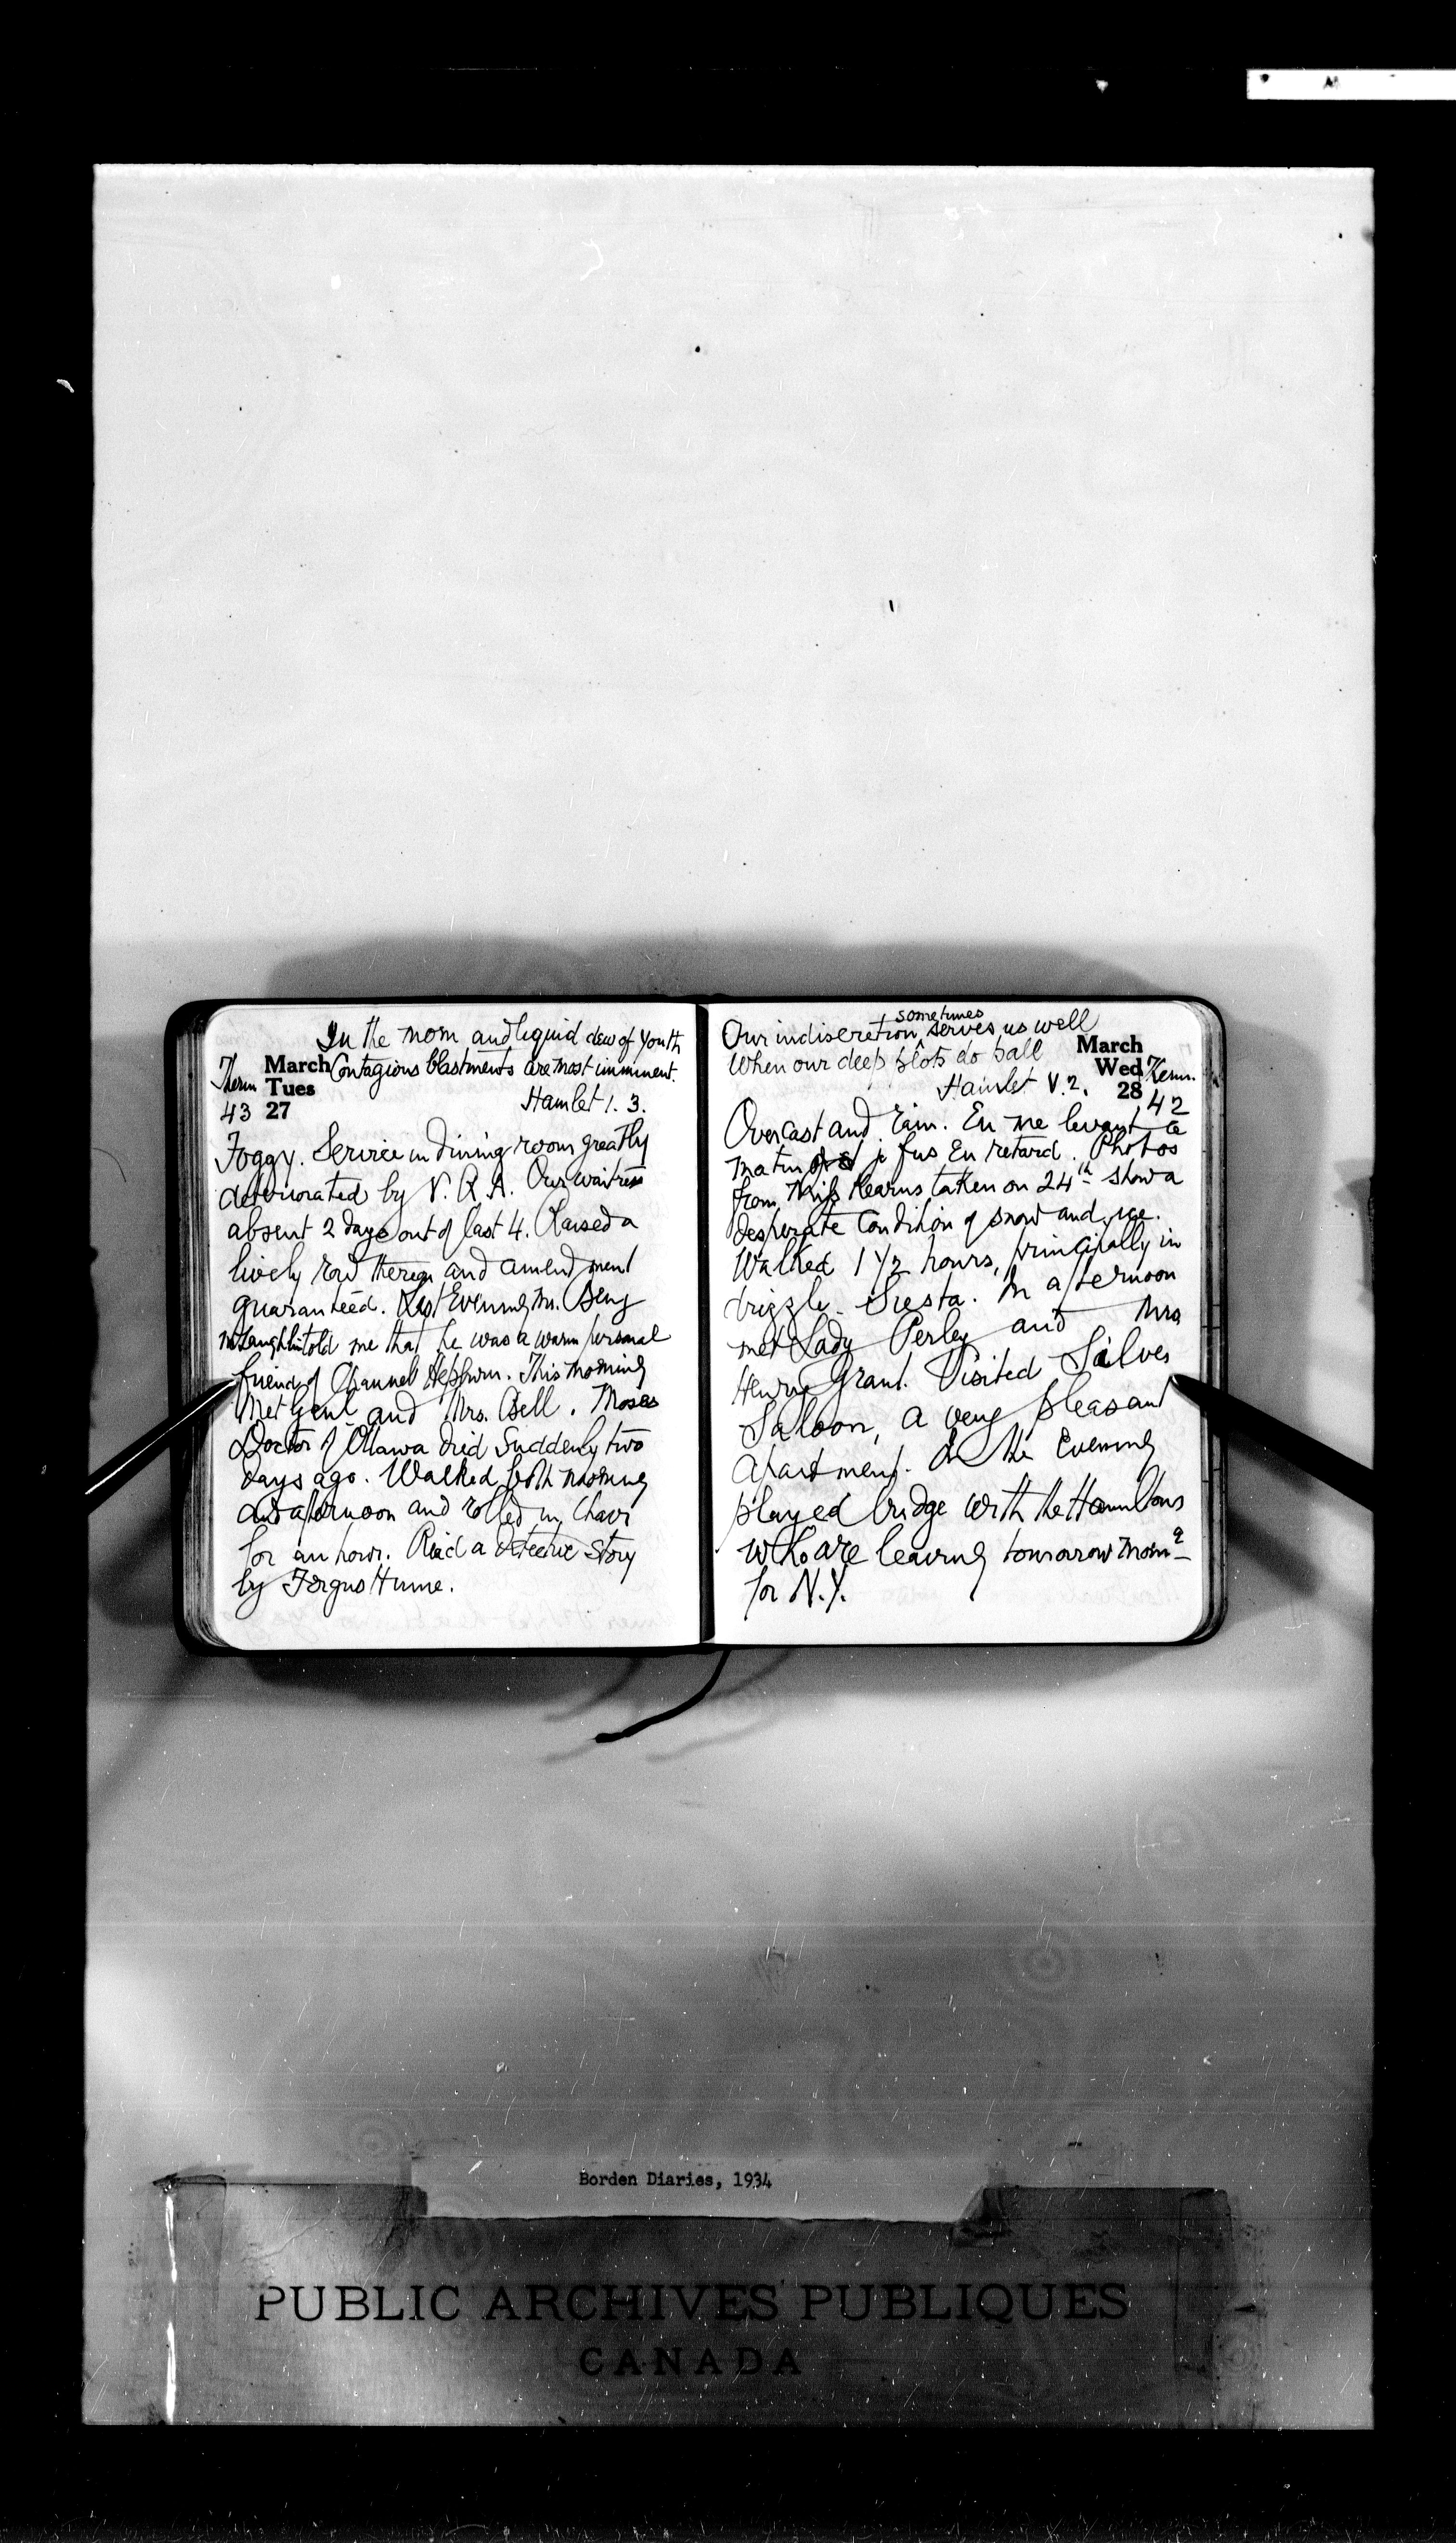 In the morn and liquid dew of youth
Contagious blastments are most imminent.
Hamlet 1. 3.
Therm
43
March
Tues
27
Foggy. Service in dining room greatly
deteriorated by N. R. A. Our waitress
absent 2 days out of last 4. Raised a
lively row thereon and amendment
guaranteed. Last Evening Mr. Benj
McLaughlin told me that he was a warm personal
friend of Channell Hepburn. This morning
Met Genl and Mrs. Bell. Moses
Doctor of Ottawa died Suddenly two
days ago. Walked both morning
and afternoon and rolled in chair
for an hour. Read a detective story
by Fergus Hume.
Our indiscretion sometimes serves us well
When our deep plots do pall
Hamlet V. 2.
March
Wed
28
Therm.
42
Overcast and rain. En me levant ce
matin je fus En retard. Photos
from Miss Kearns taken on 24th show a
desperate condition of snow and ice.
Walked 1 1/2 hours, principally in
drizzle. Siesta. In afternoon
met Lady Perley and Mrs
Henry Grant. Visited Silver
Saloon, a very pleasant
apartment. In the Evening
played bridge with the Hamiltons
who are leaving tomorrow morng
for N.Y.
Borden Diaries, 1934
PUBLIC ARCHIVES PUBLIQUES
CANADA